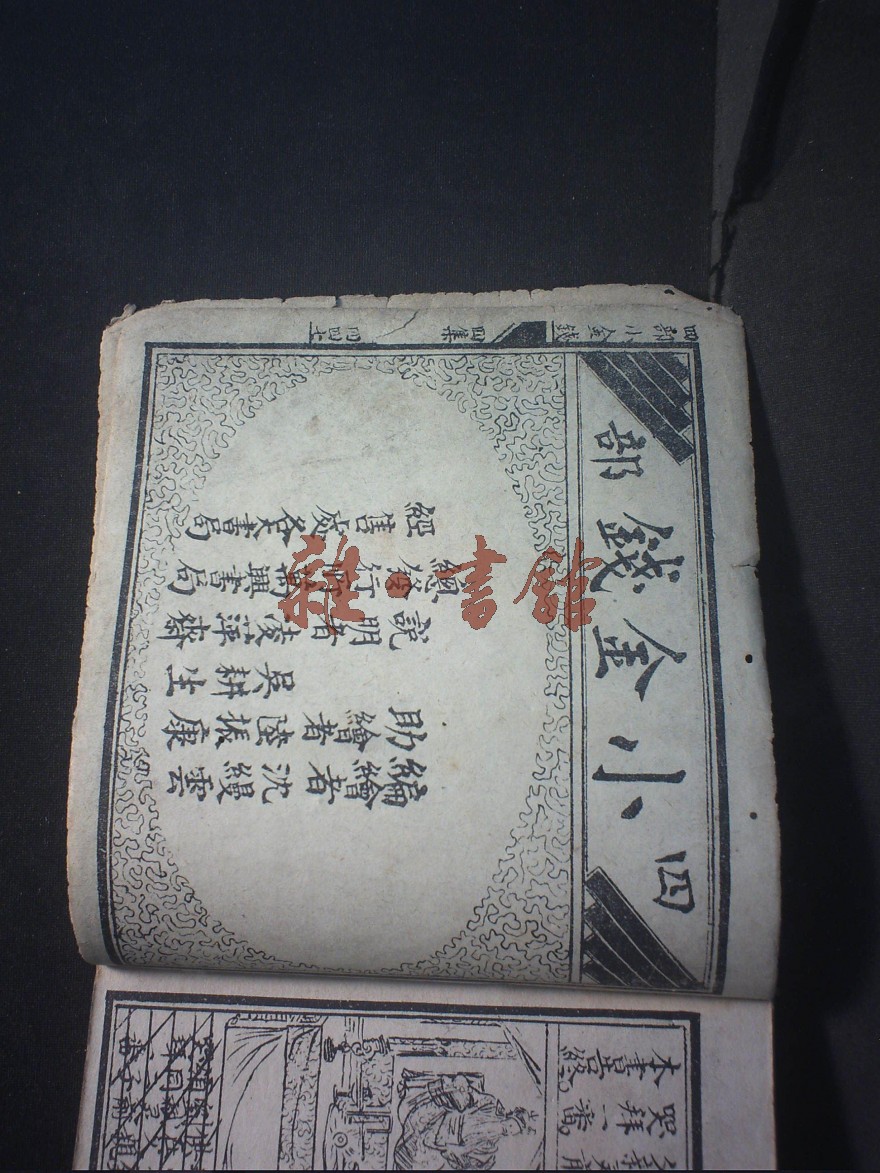 四小金錢部
編繪者沈縵雲
助繪者陸振康
吳耕生
說明者凌萍齋
總發行所興書局
經售處各大書局
四部小金錢
四集
哭拜一番。
本書告終
雜·書館